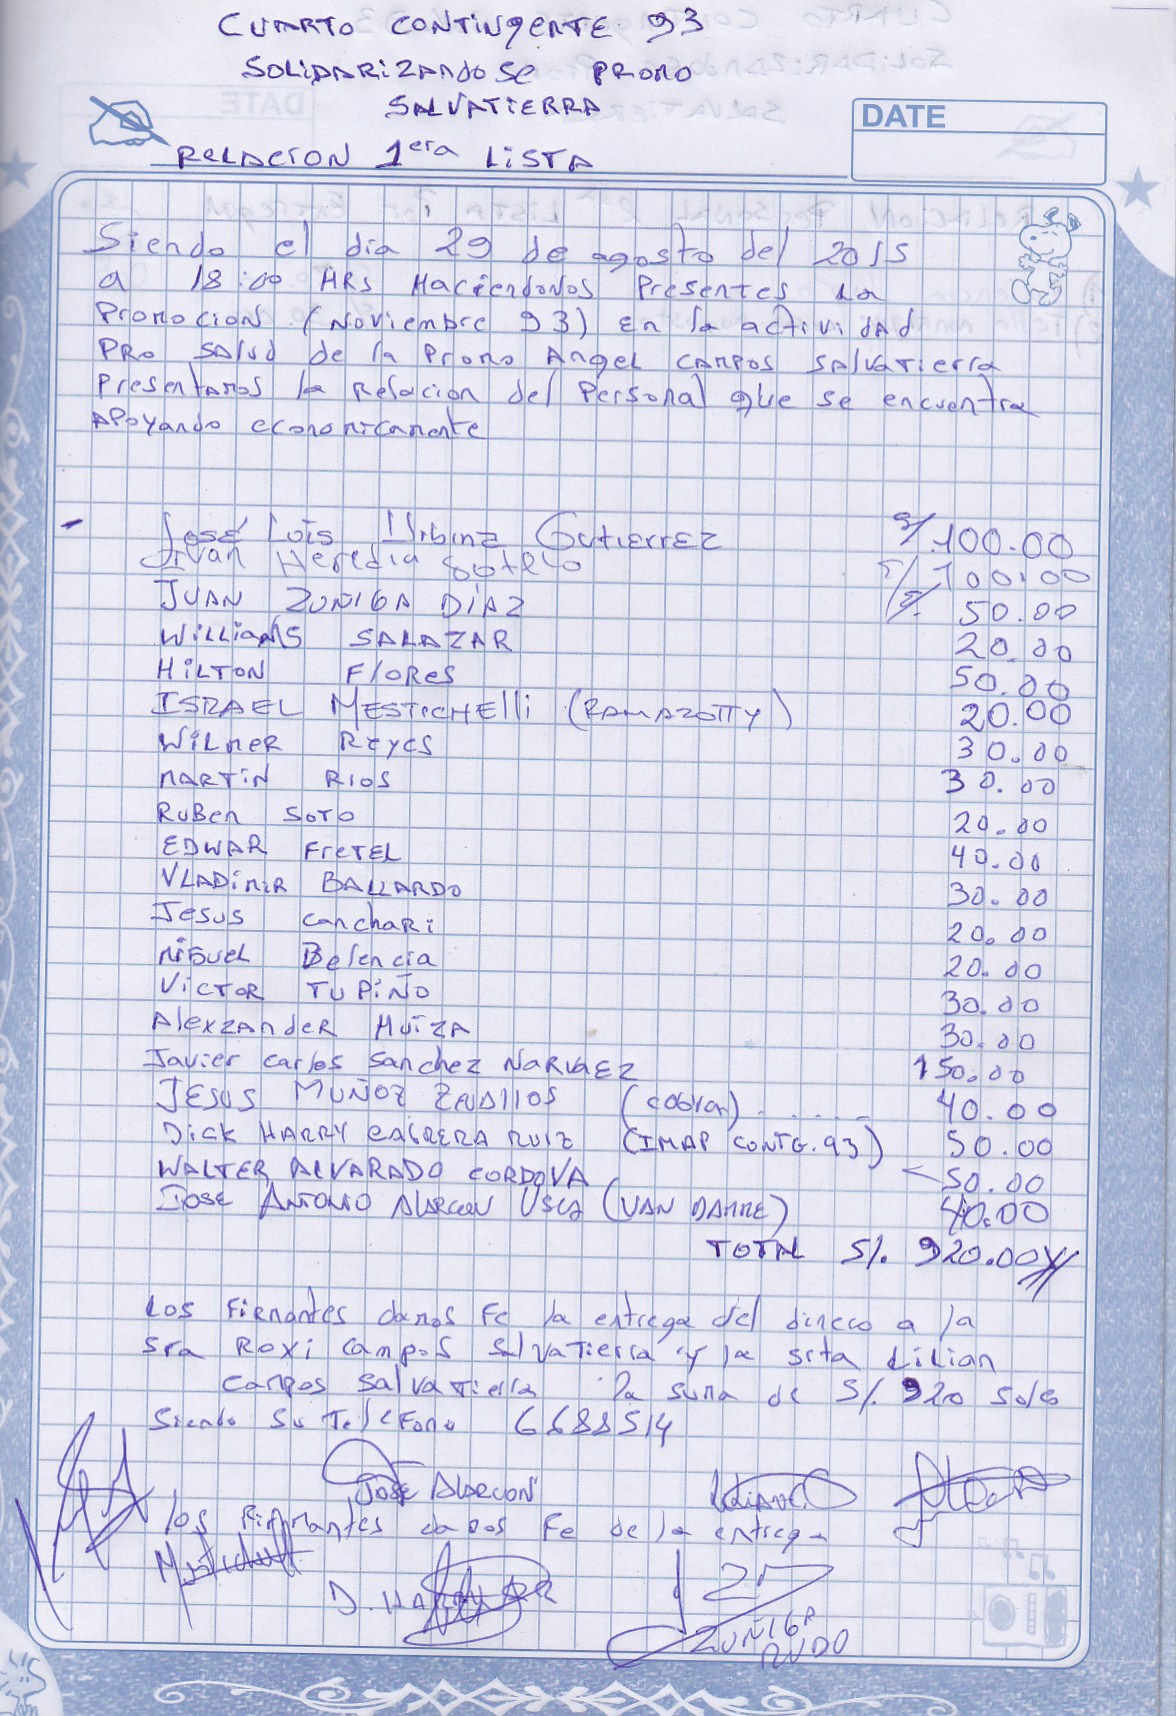 CUARTO CONTINGENTE 93
SOLIDARIZANDOSE PROMO
SALVATIERRA
DATE
RELACION 1era LISTA
Siendo el dia 29 de agosto del 2015
a 18:00 HRS Haciendonos Presentes La
Promocion (Noviembre 93) En la actividad
PRO SALUD de la Promo Angel CAMPOS SALVATIERRA
Presentamos la Relacion del Personal que se encuentra
APOYANDO economicamente
- José Luis Urbina GUTIERREZ S/. 100.00
Ivan Heredia Sotelo S/ 100.00
JUAN ZUÑIGA DIAZ S/. 50.00
WILLIAMS SALAZAR 20.00
HILTON FLORES 50.00
ISRAEL MESTICHELLI (RAMAZOTTY) 20.00
WILMER REYES 30.00
MARTIN RIOS 30.00
RUBEN SOTO 20.00
EDWAR FRETEL 40.00
VLADIMIR BALLARDO 30.00
JESUS CANCHARI 20.00
MIGUEL Belencia 20.00
VICTOR TUPIÑO 30.00
AlexzANDER HUIZA 30.00
Javier carlos Sanchez NARVAEZ 150.00
JESUS MUÑOZ ZEVALLOS (cobra) ...... 40.00
DICK HARRY CABRERA RUIZ (IMAP CONTG.93) 50.00
WALTER ALVARADO CORDOVA 50.00
JOSE ANTONIO ALARCON (VAN DAMME) 40.00
TOTAL S/. 920.00
Los Firmantes damos Fe la entrega del dinero a la
Sra ROXI Campos SalvaTierra y la srta LILIAN
Campos SalvaTierra la suma de S/. 920 soles
Siendo su TeleFono 6688514
JOSE ALARCON
los Firmantes damos Fe de la entrega
ZUÑIGA
RUDO